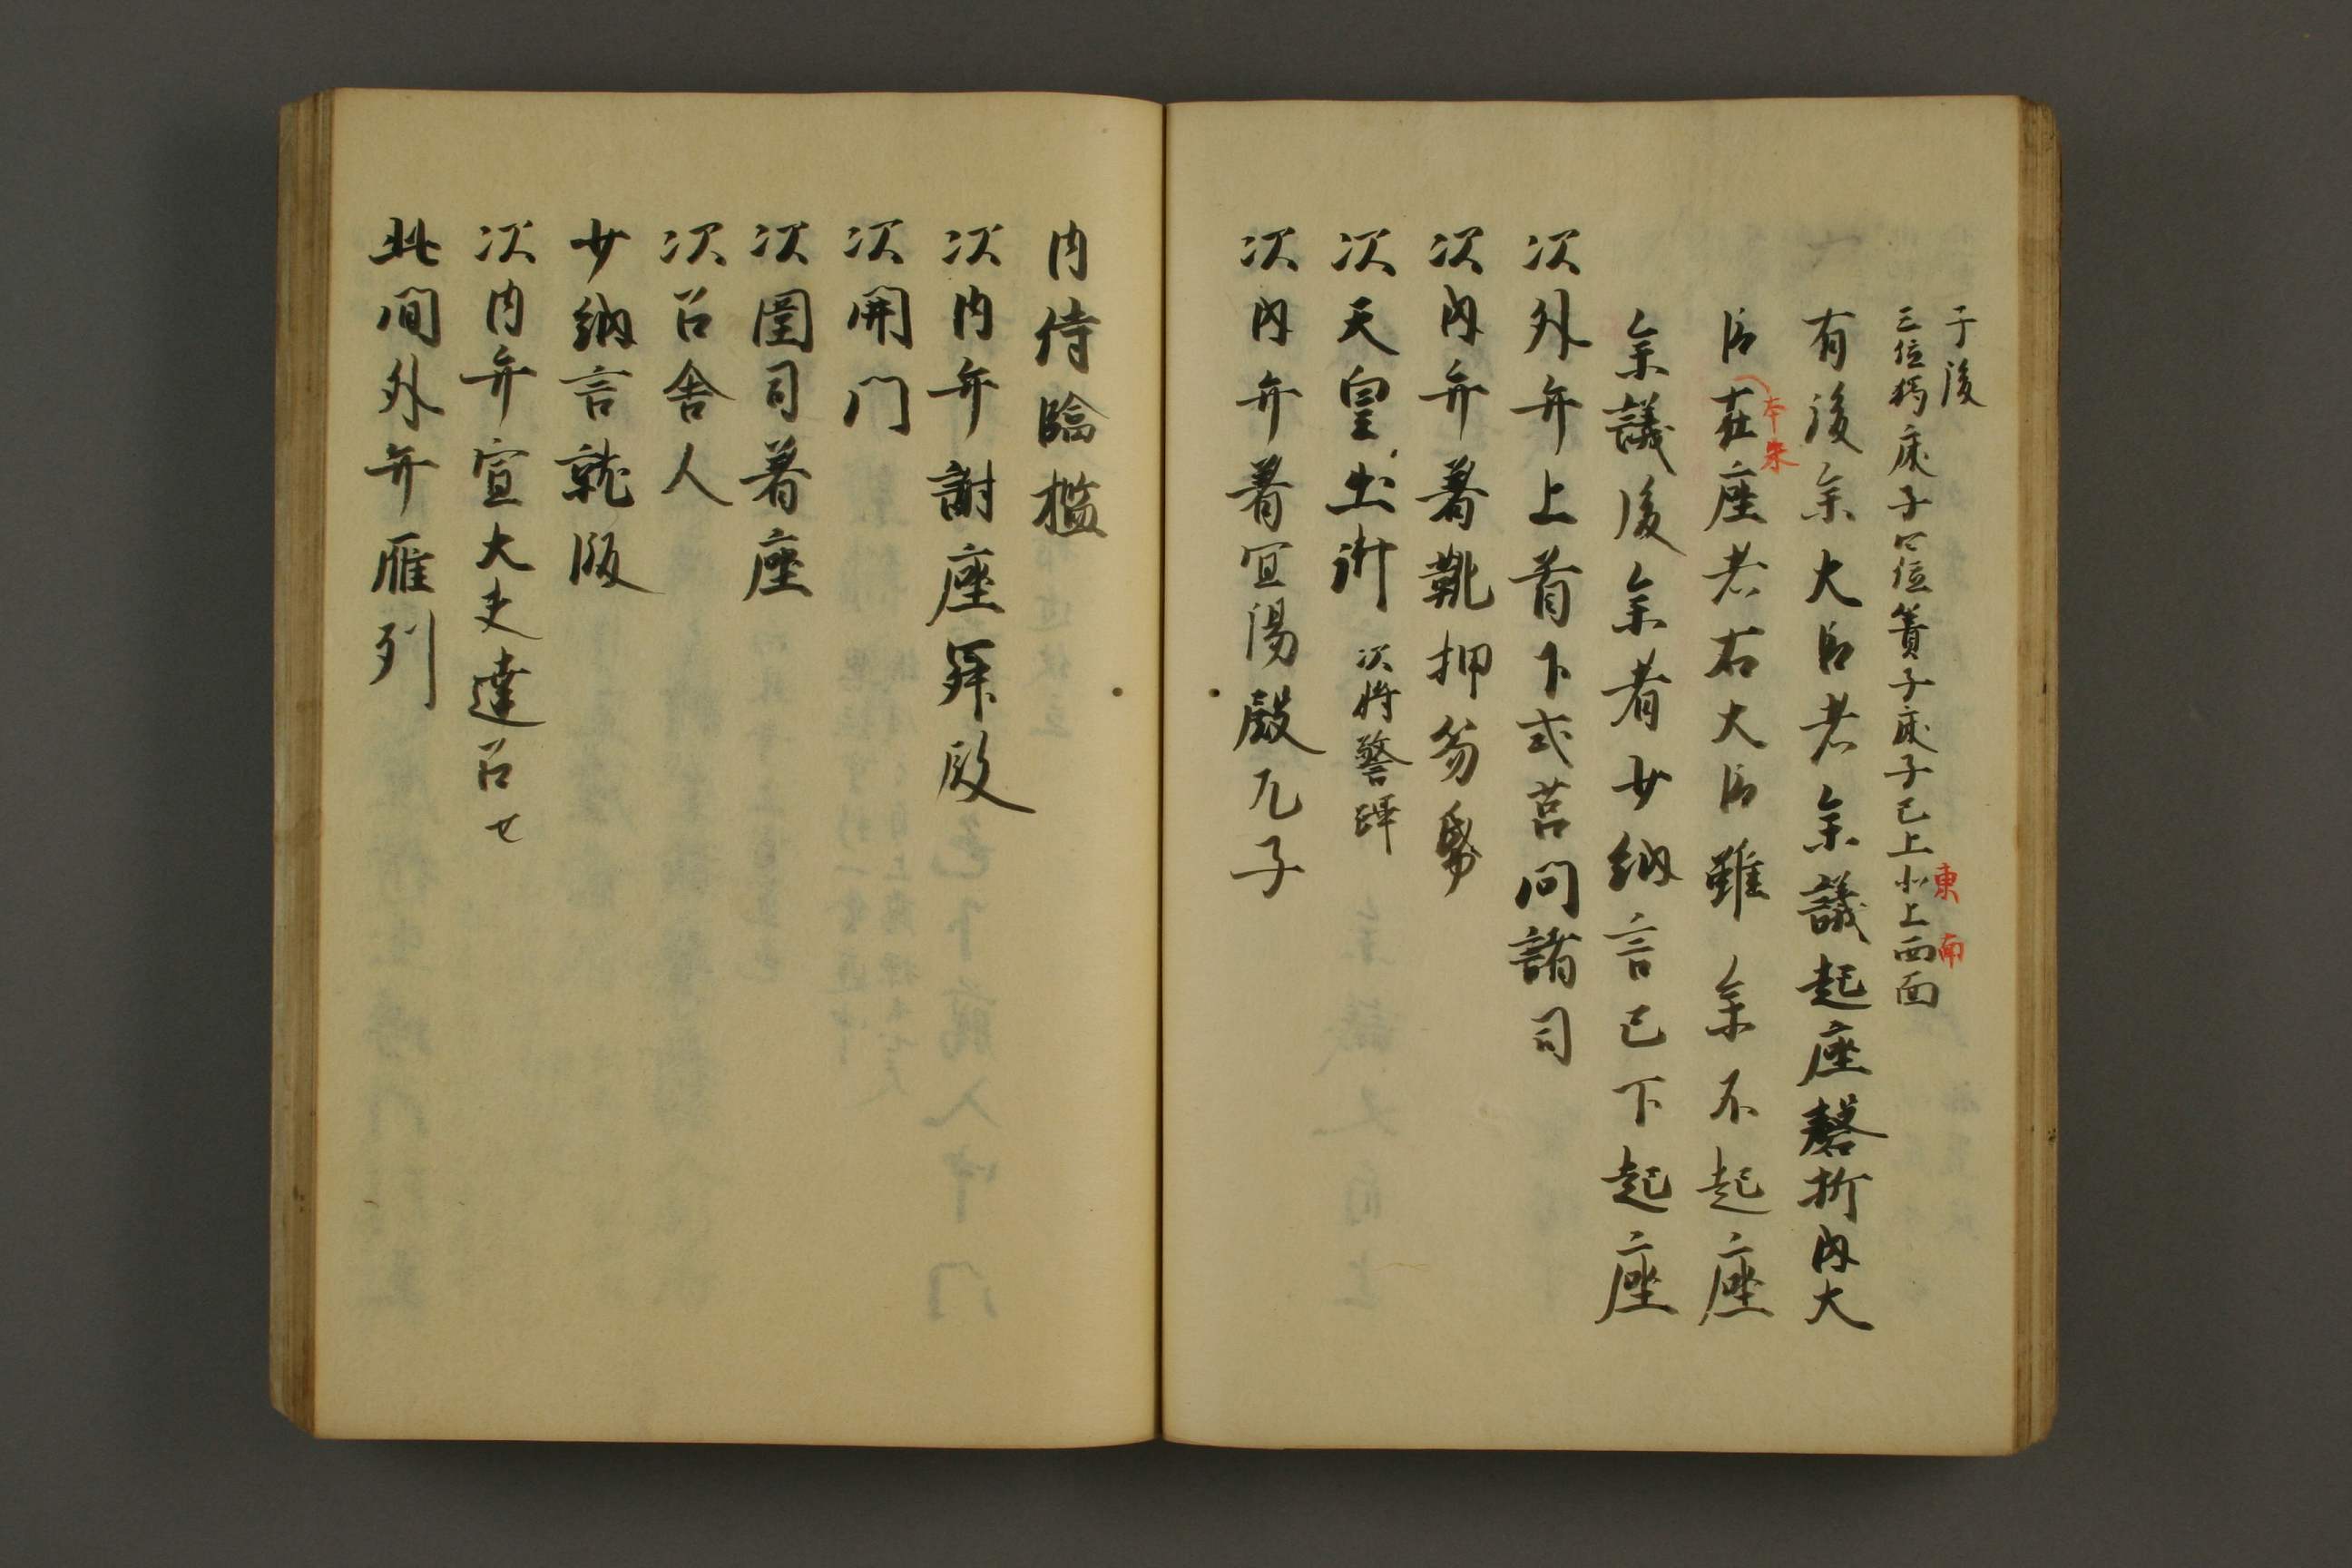 于後
三位揚床子四位簀子床子已上北上西面
東 南
有後参大臣者参議起座磬折内大
臣在座者右大臣雖参不起座
本朱
参議後参者少納言已下起座
次外弁上首下式筥問諸司
次内弁著靴押笏
次天皇出御 次将警蹕
次内弁著宜陽殿兀子
内侍臨檻
次内弁謝座昇殿
次開門
次闈司著座
次召舎人
少納言就版
次内弁宣大夫達召セ
此間外弁雁列